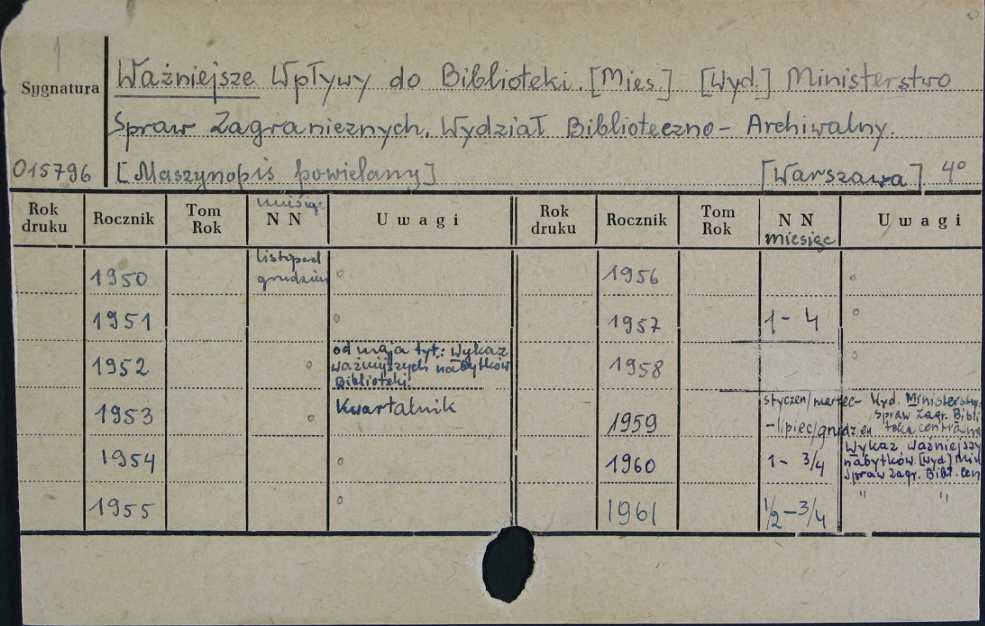 1
Sygnatura
Ważniejsze Wpływy do Biblioteki. [Mies] [Wyd.] Ministerstwo
Spraw Zagranicznych. Wydział Biblioteczno- Archiwalny.
015796 [Maszynopis powielany] [Warszawa] 4°
Rok druku Rocznik Tom Rok N N miesiąc U w a g i Rok druku Rocznik Tom Rok N N miesiąc U w a g i
1950 listopad grudzień ° 1956 °
1951 ° 1957 1 - 4 °
1952 ° od maja tyt.: Wykaz ważniejszych nabytków Biblioteki. 1958
1953 ° Kwartalnik 1959 styczeń/marzec- -lipiec/grudzień Wyd. Ministerstw. Spraw Zagr. Bibli
1954 ° 1960 1 - 3/4 Wykaz ważniejszy nabytków. [wyd] Min Spraw Zagr. Bibl. Cen
1955 ° 1961 1/2 - 3/4 " "